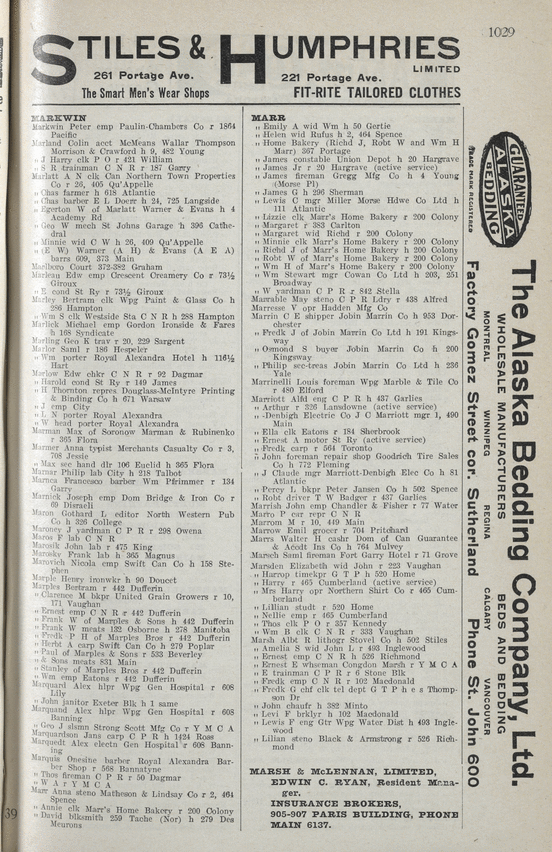 1029
STILES & HUMPHRIES
LIMITED
261 Portage Ave. 221 Portage Ave.
The Smart Men's Wear Shops FIT-RITE TAILORED CLOTHES
MARKWIN
Markwin Peter emp Paulin-Chambers Co r 1864
Pacific
Marland Colin acct McMeans Wallar Thompson
Morrison & Crawford h 9, 482 Young
„ J Harry clk P O r 421 William
„ S R trainman C N R r 187 Garry
Marlatt A N clk Can Northern Town Properties
Co r 26, 405 Qu'Appelle
„ Chas farmer h 618 Atlantic
„ Chas barber E L Doerr h 24, 725 Langside
„ Egerton W of Marlatt Warner & Evans h 4
Academy Rd
„ Geo W mech St Johns Garage h 396 Cathe-
dral
„ Minnie wid C W h 26, 409 Qu'Appelle
„ (E W) Warner (A H) & Evans (A E A)
barrs 609, 373 Main
Marlboro Court 372-382 Graham
Marleau Edw emp Crescent Creamery Co r 73½
Giroux
„ E cond St Ry r 73½ Giroux
Marley Bertram clk Wpg Paint & Glass Co h
286 Hampton
„ Wm S clk Westside Sta C N R h 288 Hampton
Marlick Michael emp Gordon Ironside & Fares
h 168 Syndicate
Marling Geo K trav r 20, 229 Sargent
Marlor Saml r 186 Hespeler
„ Wm porter Royal Alexandra Hotel h 116½
Hart
Marlow Edw chkr C N R r 92 Dagmar
„ Harold cond St Ry r 149 James
„ H Thornton repres Douglass-McIntyre Printing
& Binding Co h 671 Warsaw
„ J emp City
„ L N porter Royal Alexandra
„ W head porter Royal Alexandra
Marman Max of Soronow Marman & Rubinenko
r 365 Flora
Marmer Anna typist Merchants Casualty Co r 3,
708 Jessie
„ Max sec hand dlr 106 Euclid h 365 Flora
Marnar Philip lab City h 218 Talbot
Marnca Francesco barber Wm Pfrimmer r 134
Garry
Marnick Joseph emp Dom Bridge & Iron Co r
69 Disraeli
Maron Gothard L editor North Western Pub
Co h 326 College
Maroney J yardman C P R r 298 Owena
Maros F lab C N R
Marosik John lab r 475 King
Maroske Frank lab h 365 Magnus
Marovich Nicola emp Swift Can Co h 158 Ste-
phen
Marple Henry ironwkr h 90 Doucet
Marples Bertram r 442 Dufferin
„ Clarence M bkpr United Grain Growers r 10,
171 Vaughan
„ Ernest emp C N R r 442 Dufferin
„ Frank W of Marples & Sons h 442 Dufferin
„ Frank W meats 132 Osborne h 278 Manitoba
„ Fredk P H of Marples Bros r 442 Dufferin
„ Herbt A carp Swift Can Co h 279 Poplar
„ Paul of Marples & Sons r 533 Beverley
„ & Sons meats 831 Main
„ Stanley of Marples Bros r 442 Dufferin
„ Wm emp Eatons r 442 Dufferin
Marquard Alex hlpr Wpg Gen Hospital r 608
Lily
„ John janitor Exeter Blk h 1 same
Marquand Alex hlpr Wpg Gen Hospital r 608
Banning
„ Geo J slsmn Strong Scott Mfg Co r Y M C A
Marquardson Jans carp C P R h 1424 Ross
Marquedt Alex electn Gen Hospital r 608 Bann-
ing
Marquis Onesine barber Royal Alexandra Bar-
ber Shop r 568 Bannatyne
„ Thos fireman C P R r 50 Dagmar
„ W A r Y M C A
Marr Anna steno Matheson & Lindsay Co r 2, 464
Spence
„ Annie clk Marr's Home Bakery r 200 Colony
„ David blksmith 259 Tache (Nor) h 279 Des
Meurons
MARR
„ Emily A wid Wm h 50 Gertie
„ Helen wid Rufus h 2, 464 Spence
„ Home Bakery (Richd J, Robt W and Wm H
Marr) 367 Portage
„ James constable Union Depot h 20 Hargrave
„ James Jr r 20 Hargrave (active service)
„ James fireman Gregg Mfg Co h 4 Young
(Morse Pl)
„ James G h 296 Sherman
„ Lewis C mgr Miller Morse Hdwe Co Ltd h
111 Atlantic
„ Lizzie clk Marr's Home Bakery r 200 Colony
„ Margaret r 383 Carlton
„ Margaret wid Richd r 200 Colony
„ Minnie clk Marr's Home Bakery r 200 Colony
„ Richd J of Marr's Home Bakery h 200 Colony
„ Robt W of Marr's Home Bakery r 200 Colony
„ Wm H of Marr's Home Bakery r 200 Colony
„ Wm Stewart mgr Cowan Co Ltd h 203, 251
Broadway
„ W yardman C P R r 842 Stella
Marrable May steno C P R Ldry r 438 Alfred
Marresse V opr Hadden Mfg Co
Marrin C E shipper Jobin Marrin Co h 953 Dor-
chester
„ Fredk J of Jobin Marrin Co Ltd h 191 Kings-
way
„ Osmond S buyer Jobin Marrin Co h 200
Kingsway
„ Philip sec-treas Jobin Marrin Co Ltd h 236
Yale
Marrinelli Louis foreman Wpg Marble & Tile Co
r 480 Elford
Marriott Alfd eng C P R h 437 Garlies
„ Arthur r 326 Lansdowne (active service)
„ -Denbigh Electric Co J C Marriott mgr 1, 490
Main
„ Ella clk Eatons r 184 Sherbrook
„ Ernest A motor St Ry (active service)
„ Fredk carp r 564 Toronto
„ John foreman repair shop Goodrich Tire Sales
Co h 772 Fleming
„ J Claude mgr Marriott-Denbigh Elec Co h 81
Atlantic
„ Percy L bkpr Peter Jansen Co h 502 Spence
„ Robt driver T W Badger r 437 Garlies
Marrish John emp Chandler & Fisher r 77 Water
Marro P car repr C N R
Marrom M r 10, 449 Main
Marrow Emil grocer r 704 Pritchard
Marrs Walter H cashr Dom of Can Guarantee
& Acodt Ins Co h 764 Mulvey
Marsch Saml fireman Fort Garry Hotel r 71 Grove
Marsden Elizabeth wid John r 223 Vaughan
„ Harrop timekpr G T P h 520 Home
„ Harry r 465 Cumberland (active service)
„ Mrs Harry opr Northern Shirt Co r 465 Cum-
berland
„ Lillian studt r 520 Home
„ Nellie emp r 465 Cumberland
„ Thos clk P O r 357 Kennedy
„ Wm B clk C N R r 333 Vaughan
Marsh Albt R lithogr Stovel Co h 502 Stiles
„ Amelia S wid John L r 493 Inglewood
„ Ernest emp C N R h 526 Richmond
„ Ernest E whseman Congdon Marsh r Y M C A
„ E trainman C P R r 6 Stone Blk
„ Fredk emp C N R r 102 Macdonald
„ Fredk G chf clk tel dept G T P h e s Thomp-
son Dr
„ John chaufr h 382 Minto
„ Levi F brklyr h 102 Macdonald
„ Lewis F eng Gtr Wpg Water Dist h 493 Ingle-
wood
„ Lilian steno Black & Armstrong r 526 Rich-
mond
MARSH & McLENNAN, LIMITED,
EDWIN C. RYAN, Resident Mana-
ger.
INSURANCE BROKERS,
905-907 PARIS BUILDING, PHONE
MAIN 6137.
GUARANTEED
ALASKA
BEDDING
TRADE MARK REGISTERED
The Alaska Bedding Company, Ltd.
WHOLESALE MANUFACTURERS BEDS AND BEDDING
MONTREAL WINNIPEG REGINA CALGARY VANCOUVER
Factory Gomez Street cor. Sutherland Phone St. John 600
39